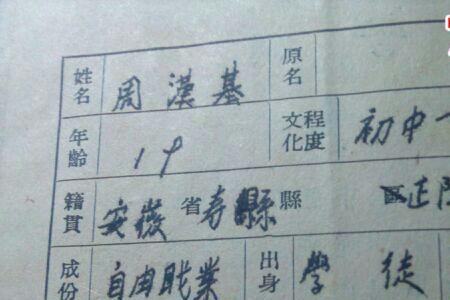 姓名 周漢基 原名
年齡 19 文化程度 初中一
籍貫 安徽省寿縣縣 區正陽
成份 自由耺業 出身 學徒